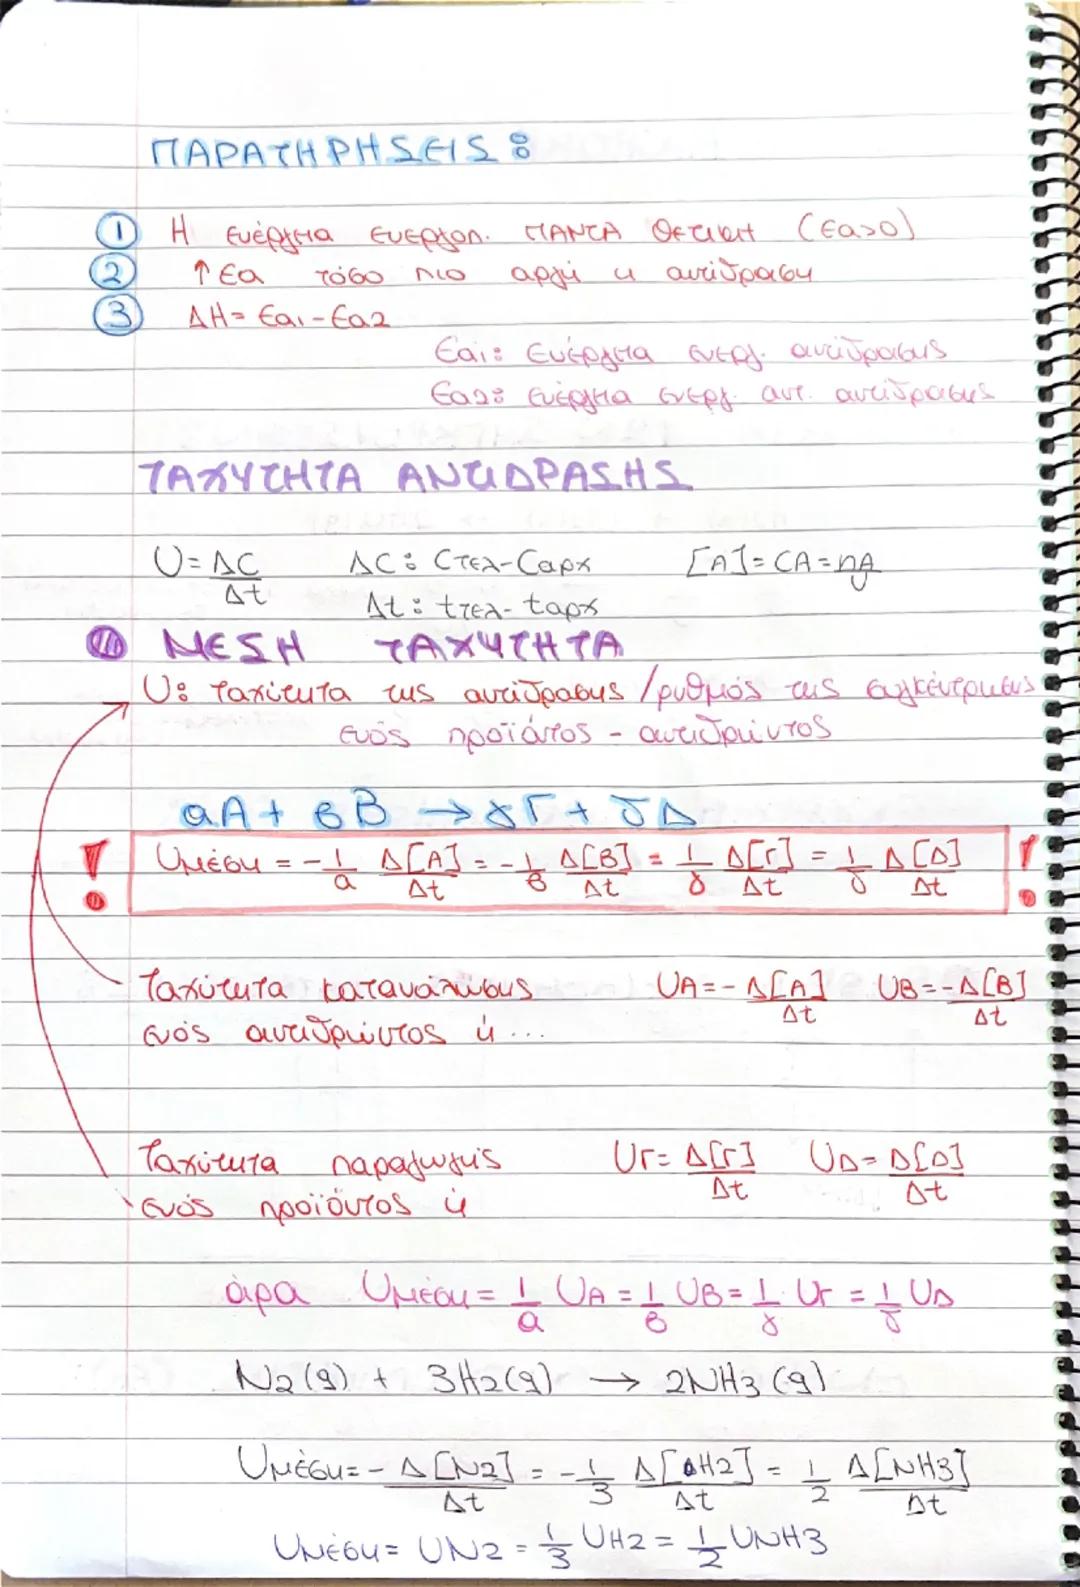 ΠΑΡΑΤΗΡΗΣΕΙΣ:
① Η ενέργεια ενεργοπ. ΠΑΝΤΑ ΘΕΤΙΚΗ (Εa>0)
② ↑Ea τόσο πιο αργή η αντίδραση
③ ΔΗ= Ea1-Ea2
Ea1: Ενέργεια ενεργ. αντίδρασης
Ea2: ενέργεια ενεργ. αντ. αντίδρασης
ΤΑΧΥΤΗΤΑ ΑΝΤΙΔΡΑΣΗΣ
U= ΔC/Δt ΔC: Cτελ-Cαρχ [A]= CA= nA
Δt: tτελ- tαρχ
① ΜΕΣΗ ΤΑΧΥΤΗΤΑ
U: Ταχύτητα της αντίδρασης /ρυθμός της συγκέντρωσης
ενός προϊόντος - αντιδρώντος
αA + βB → γΓ + δΔ
! Uμέση = -1/α Δ[A]/Δt = -1/β Δ[B]/Δt = 1/γ Δ[Γ]/Δt = 1/δ Δ[Δ]/Δt !
Ταχύτητα κατανάλωσης UA= - Δ[A]/Δt UB= -Δ[B]/Δt
ενός αντιδρώντος ή ...
Ταχύτητα παραγωγής UΓ= Δ[Γ]/Δt UΔ= Δ[Δ]/Δt
ενός προϊόντος ή
άρα Uμέση= 1/α UA = 1/β UB = 1/γ UΓ = 1/δ UΔ
N2(g) + 3H2(g) → 2NH3(g)
Uμέση= - Δ[N2]/Δt = -1/3 Δ[H2]/Δt = 1/2 Δ[NH3]/Δt
Uμέση= UN2 = 1/3 UH2 = 1/2 UNH3